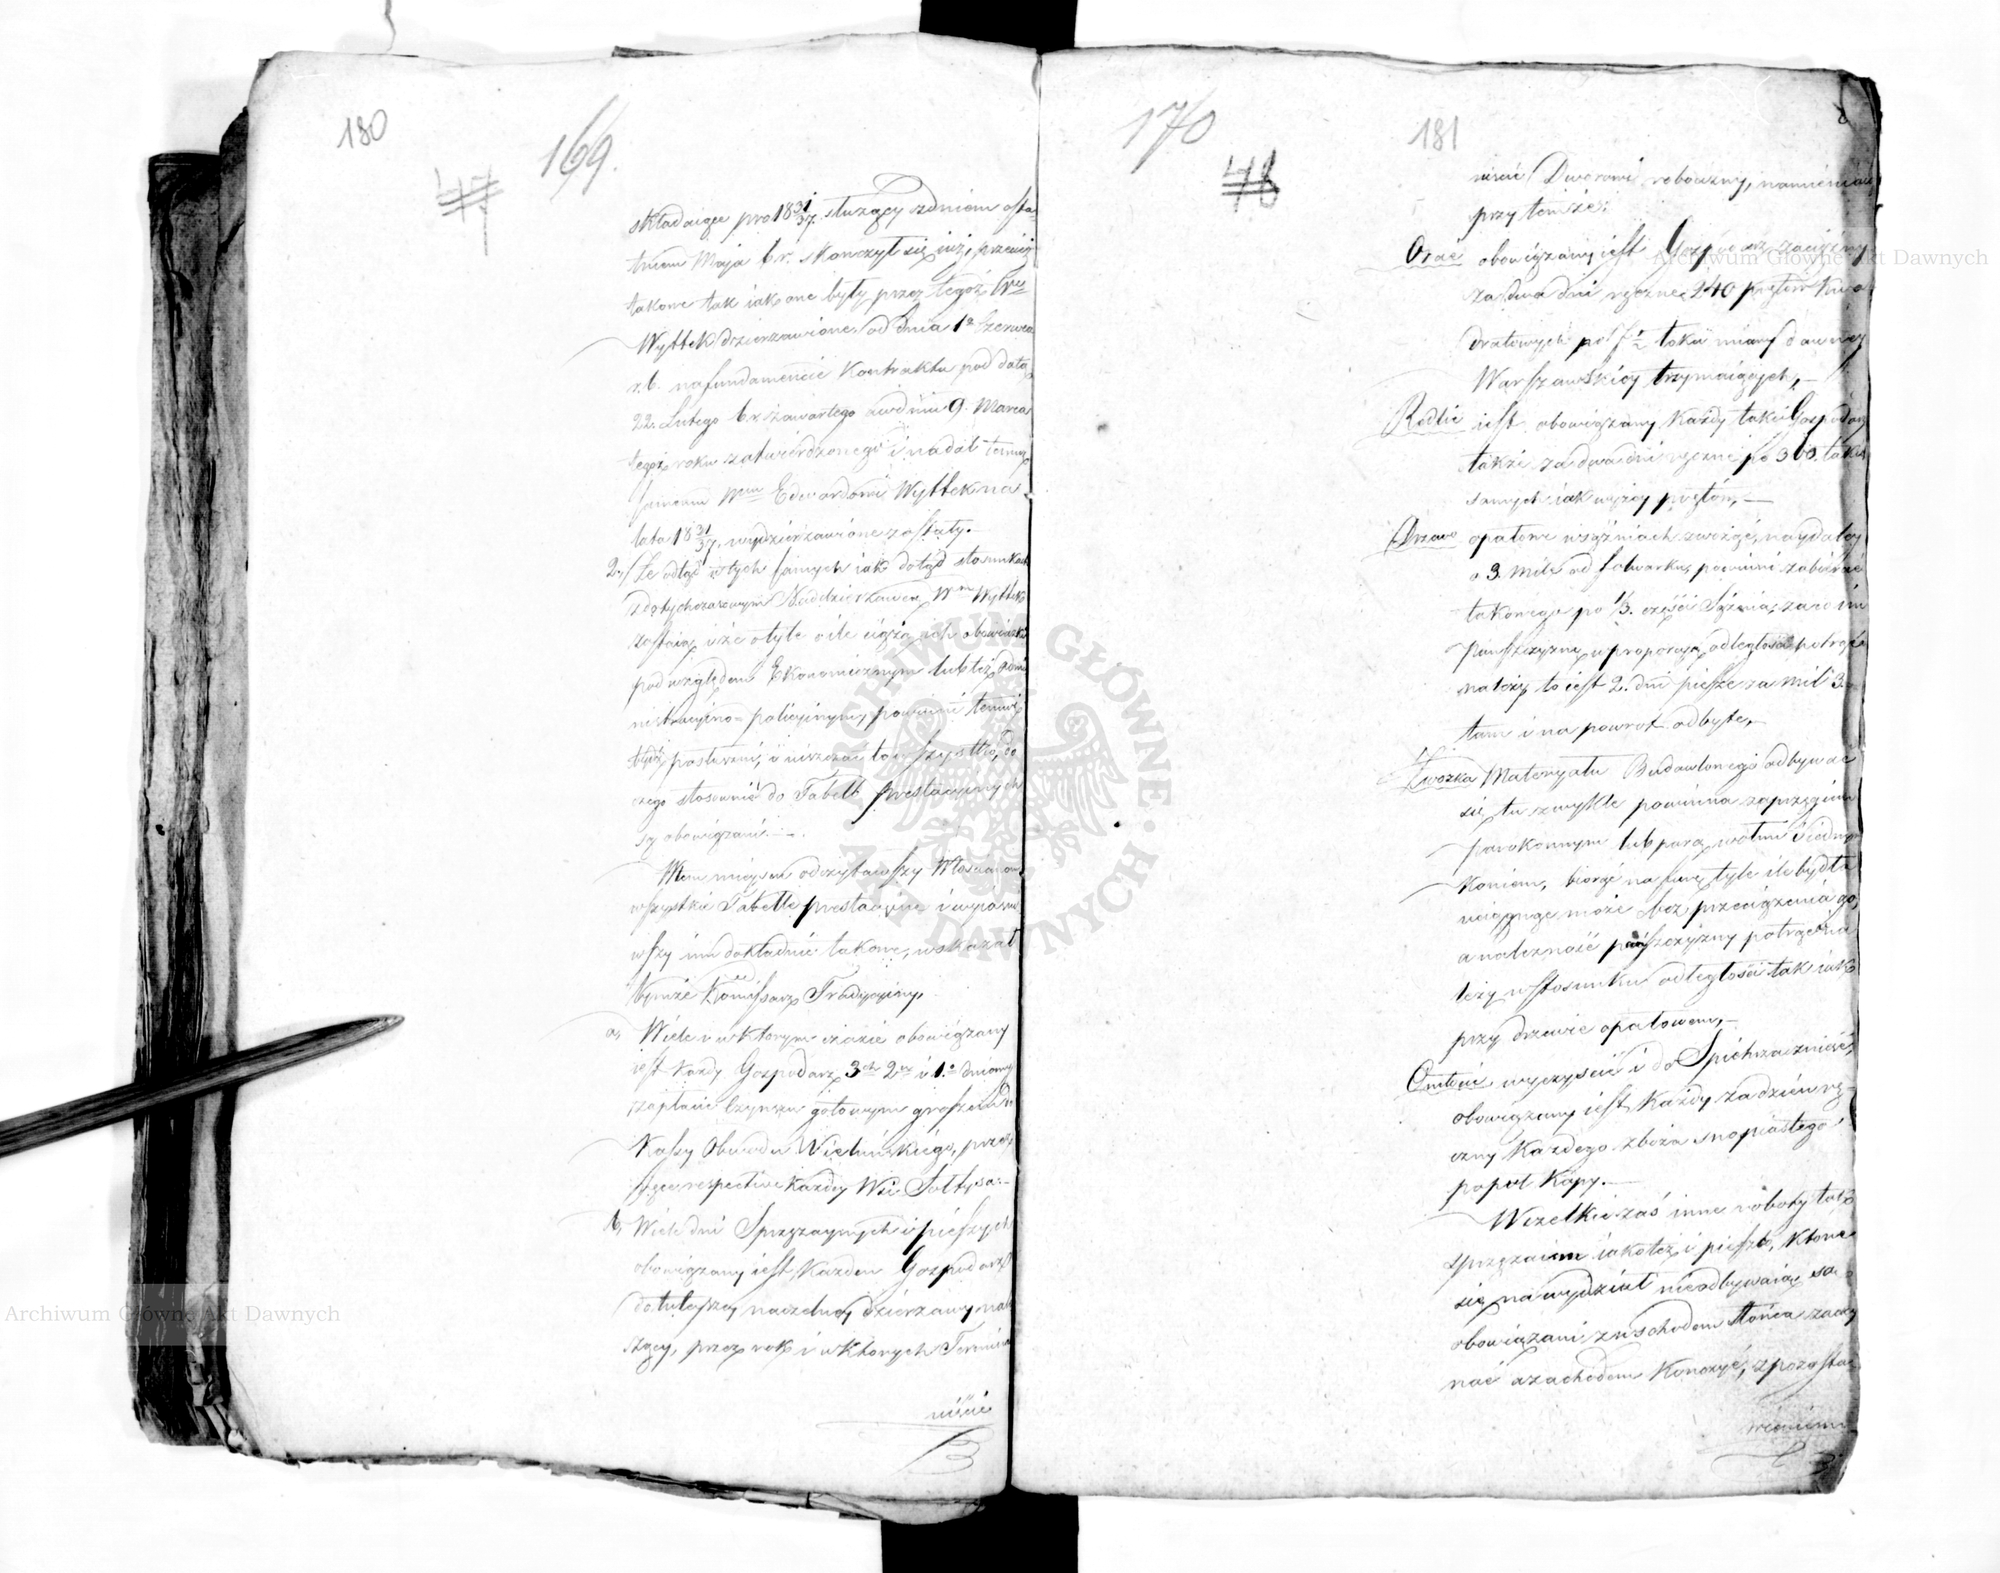 180
169.
47
składaiące pro 18 31/37. służący z dniem osta-
tniem Maja b.r. skonczył się już, przecież
takowe tak iak one były przez tegoż Wgo
Wyttek dzierzawione, od dnia 1o Czerwca
r.b. na fundamencie Kontraktu pod datą
22. Lutego b.r. zawartego a w dniu 9. Marca
tegoż roku zatwierdzonego i nadal temuż
samemu Wmu Edwardowi Wyttek na
lata 18 31/37. wydzierzawione zostały.
2./ Ze odtąd w tych samych iak dotąd stosunkach
z dotychczasowym Naddzierżawcą Wm Wyttek
zostaią i że o tyle o ile ciążą ich obowiązki
pod względem Ekonomicznym lub też Admi-
nistracyino-policyinym, powinni temuż
bydź posłuszni, i uiszczać to wszystko, do
czego stosownie do Tabelli prestacyinych
są obowiązani.—.
Wtem mieyscu odczytawszy Włościanom
wszystkie Tabelle prestacyine i wyiaśni-
wszy im dokładnie takowe, wskazał
tymże Kommissarz Tradycyiny,
a, Wiele i w którym czasie obowiązany
iest każdy Gospodarz 3ch 2ch i 1.o dniowy
zapłacić Czynszu gotowym groszem do
Kassy Obwodu Wieluńskiego, przez
ręce respective każdey Wsi Sołtysa.—
b, Wiele dni Sprzężaynych i pieszych
obowiązany iest, Każden Gospodarz
do tuteyszey naczelney dzierzawy nale-
żący, przez rok i w których Termina
uiścić
170
181
48
uiścić Dworowi robocizny, namieniaiąc
przy temże:
Orać obowiązany iest Gospodarz zaciężny
za dwa dni ręczne 240 prętów Kwa-
dratowych po 7½ łokci miary dawney
Warszawskiey trzymaiących,—
Radlić iest obowiązany każdy taki Gospodarz
także za dwa dni ręczne po 360. takich
samych iak wyżey prętów,—
Drzewo opałowe w sążniach zwozić, naydaley
o 3. mile od folwarku, powinni zabierać
takowego po 1/3. części Sążnia, za co im
pańszczyznę w proporcyą odległości potrącić
należy to iest 2. dni piesze za mil 3.
tam i na powrot odbyte,—
Zwozka Materyału Budowlonego odbywać
się tu zwykle powinna zaprzęgiem
parokonnym lub parą wołmi i iednym
koniem, biorąc na furę tyle ile bydło
uciągnąć może bez przeciążenia go,
a należność pańszczyzny potrącić na-
leży w stosunku odległości tak iak
przy drzewie opałowem,—
Omłócić wyczyścić i do Spichrza znieść,
obowiązany iest, Każdy za dzień rę-
czny Każdego zboża snopiastego
po puł Kopy.—
Wszelkie zaś inne roboty tak
sprzężaine iako też i piesze, które
się na wydział nieodbywaią są
obowiązani z wschodem słońca zaczy-
nać a zachodem Konczyć, z pozosta-
wieniem